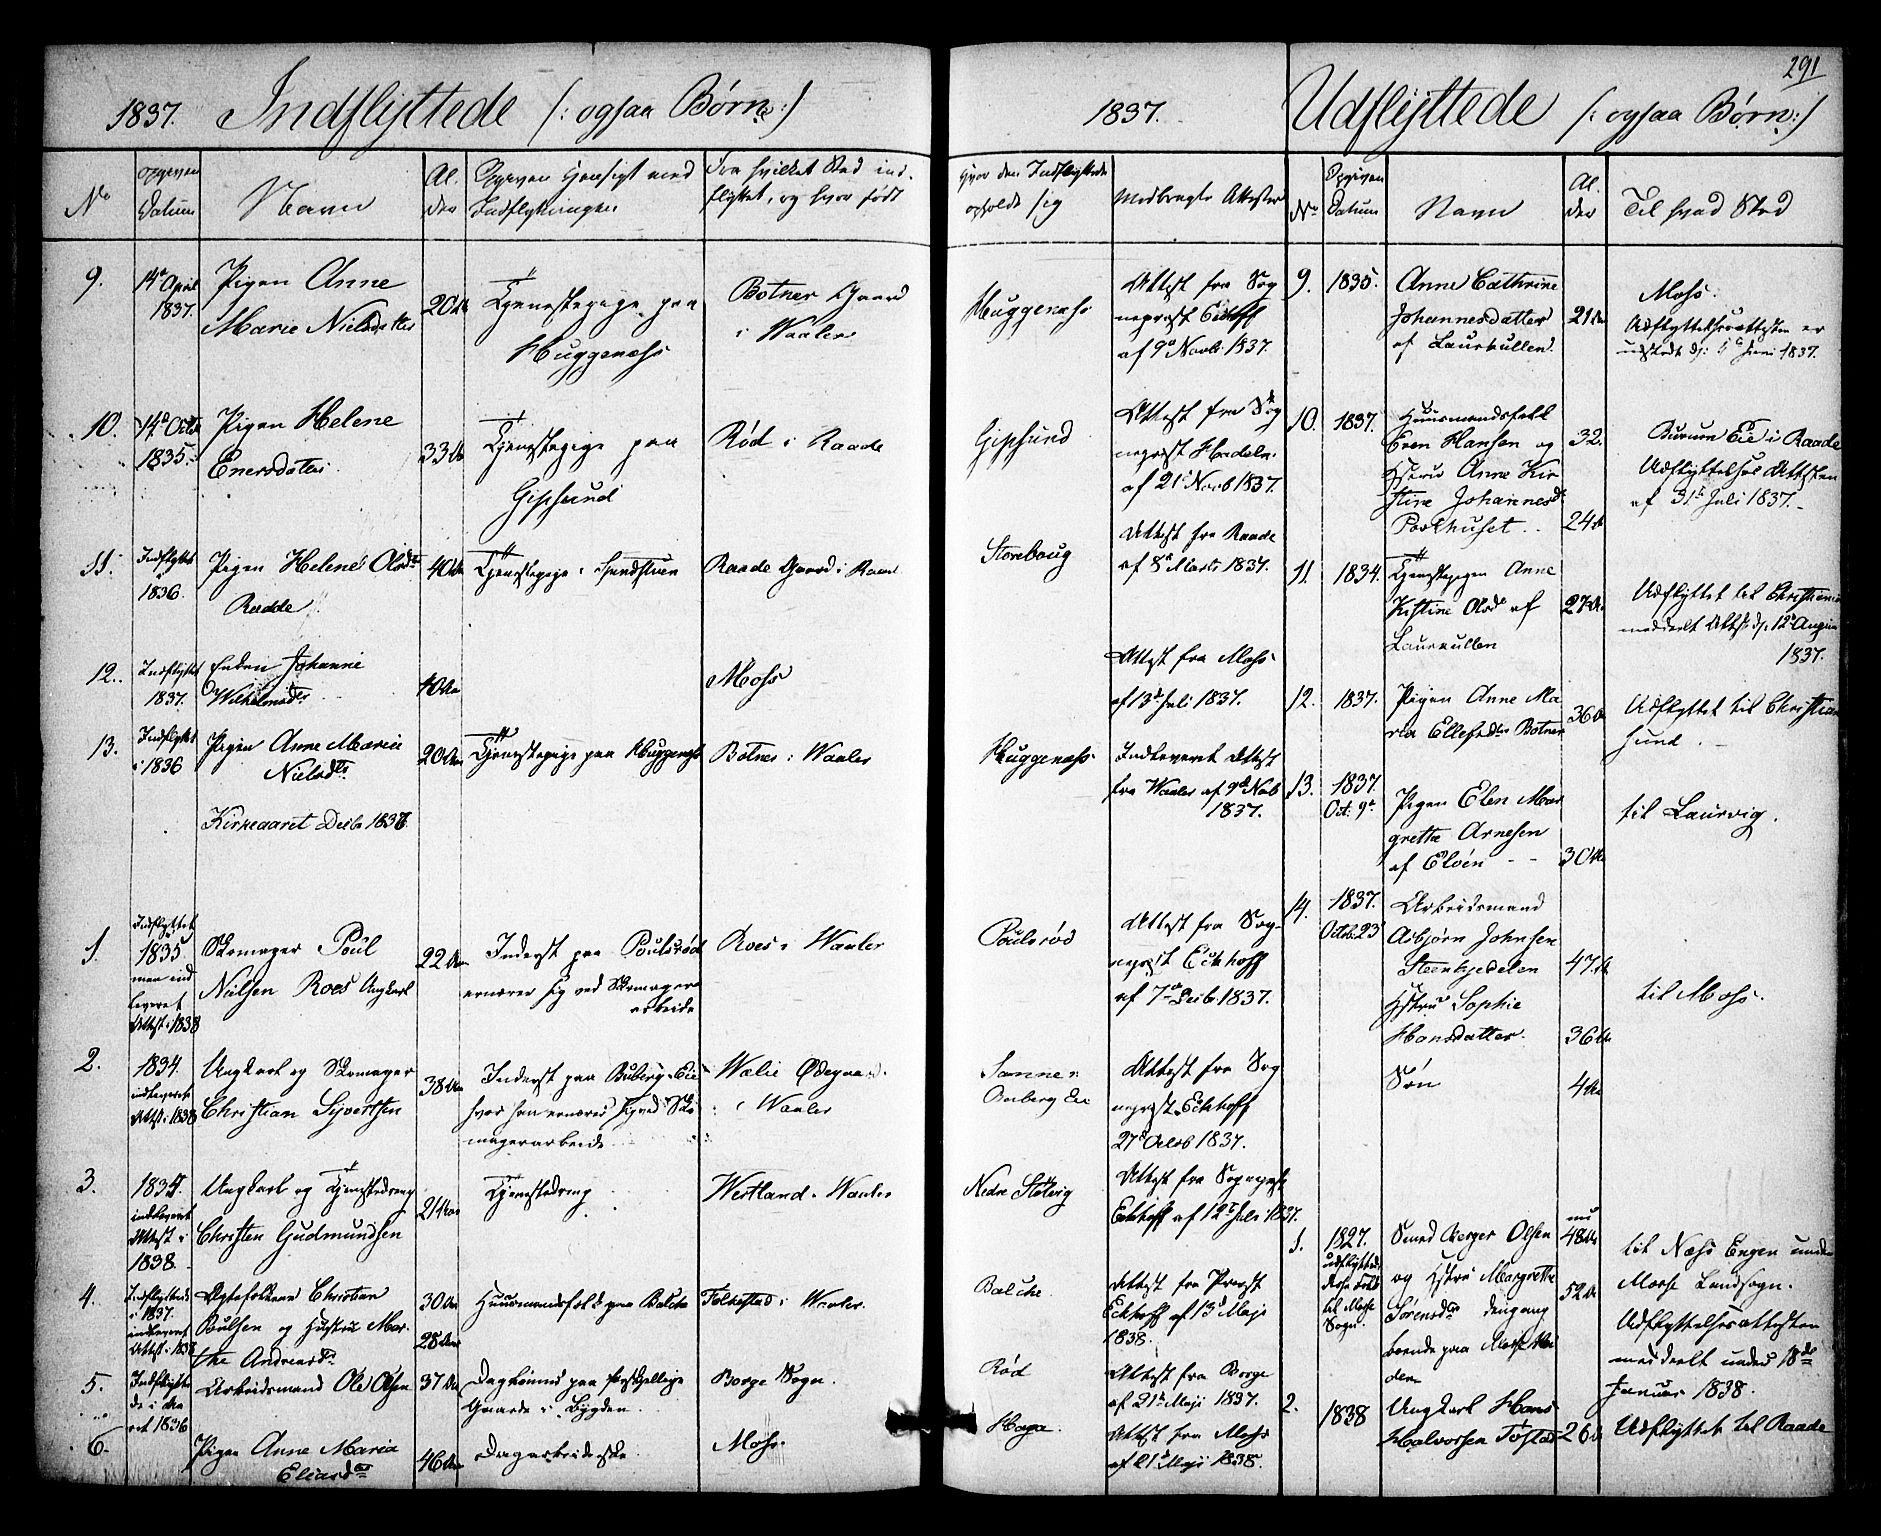 291
1837. Indflyttede (: ogsaa Børn :)
1837. Udflyttede (: ogsaa Børn :)
No
opgiven Datum
Navn
Al-
der
Opgiven Hensigt med
Indflytningen
Fra hvilket Sted ind-
flyttet, og hvor født
Hvor den Indflyttede
opholde sig
Medbragte Attester
No
Opgiven
Datum
Navn
Al-
der
Til hvad Sted
9.
14d April
1837.
Pigen Anne
Marie Nielsdatter
20 Aar
Tjenestepige paa
Huggenæss
Botner Gaard
i Waaler
Huggenæss
Attest fra Sog
nepræst Eckhoff
af 9d Novb: 1837.
10.
14d Octb
1835.
Pigen Helene
Enersdatter
33 Aar
Tjenestepige paa
Gipsund
Rød i Raade
Gipsund
Attest fra Sog
nepræst
af 21 Novb 1837.
11.
Indflyttet
1836.
Pigen Helene Olsdr
Raade
40 Aar
Tjenestepige i
Raade Gaard i Raade
Storebaug
Attest fra Raade
af 8d Marts 1837.
12.
Indflyttet
1837.
Enken Johanne
Wilhelmsdr
40 Aar
Moss
Attest fra Moss
af 13d Juli 1837.
13.
Indflyttet
i 1836
Pigen Anne Marie
Nielsdr
20 Aar
Tjenestepige paa Huggenæss
Botner i Waaler
Huggenæss
Indleveret Attest
fra Waaler af 9d Nov
1837.
Kirkeaaret Decb 1838
1.
Indflyttet
1835
men ind
leveret
Attest i 1838
Skomager Poul
Nielsen Roes Ungkarl
22 Aar
Inderst paa Poulsrød
ernærer sig ved Skomager
arbeide
Roes i Waaler
Poulsrød
Attest fra Sog-
nepræst Eckhoff
af 7d Decb 1837.
2.
1834.
indleveret
Attst: 1838
Ungkarl og Skomager
Christian Syvertsen
38 Aar
Inderst paa Buberg Eie
hvor han ernærer sig ved Sko
magerarbeide
Ødegaard
i Waaler
Attest fra Sog
nepræst Eckhoff
27d Octb 1837.
3.
1834.
indleveret
Attest i
1838.
Ungkarl og Tjenestedreng
Christen Gudmundsen
21 Aar
Tjenestedreng
Westland i Waaler
Nedre
Attest fra Sognepræst
Eckhoff af 12te Juli 1837.
4.
Indflyttede
i 1837.
indleveret
Attst: 1838
Ægtefolkene Christian
Poulsen og Hustru Mar-
the Andreasdr
30 Aar
28 Aar
Huusmandsfolk paa Balche
Folkestad i Waaler
Balche.
Attest fra Præst
Eckhoff af 13d Maji
1838.
5.
Indflytte
de i Aa
ret 1836
Arbeidsmand Ole Olsen
37 Aar
Daglønner paa forskjellige
Gaarde i Bygden
Borge Sogn.
Rød
Attest fra Borge
af 21d Maji 1837.
6.
Pigen Anne Maria
Eliasdr
46 Aar
Dagarbeiderske
Moss.
Haga.
Attest fra Moss
af 21d Maji 1838.
9.
1835.
Anne Cathrine
Johannesdatter
af Laurkullen.
21 Aar
Moss.
Udflyttelsesattesten er
udstedt d: 5d Juni 1837.
10.
1837.
Huusmandsfolk
Even Hansen og
Hstru Anne Kir-
stine Johannesdr
Parkhuset.
32.
24 Aar
Eie i Raade
Udflyttelses Attesten
af 31te Juli 1837.
11.
1834.
Tjenestepigen Anne
Kistine Olsdr af
Laurkullen
27 Aar
Udflyttet til Christiania
meddeelt Attst: d: 12d August
1837.
12.
1837.
Pigen Anne Ma
ria Ellefsdr Botner
36 Aar
Udflyttet til Christian
sund.
13.
1837.
Oct. 9d
Pigen Elen Mar
grethe Arnesen
af Eløen
30 Aar
til Laurvig.
14.
1837.
Octb. 23
Arbeidsmand
Asbjørn Johnsen
Steenkjedelen
Hstru Sophie
Hansdatter.
Søn
47 Aar
36 Aar
4 Aar
til Moss.
1.
1827.
udflyttede
disse Folk
til Mosse
Sogn.
Smed Berger Olsen
og Hstru Margrethe
Sørensdr dengang
boende paa
nu
48 Aar
52 Aar
til Næss Engen under
Mosse Landsogn.
Udflyttelsesattesten
meddeelt under 18de
Januar 1838.
2.
1838
Ungkarl Hans
Halvorsen Tofstad
26 Aar
Udflyttet til Raade